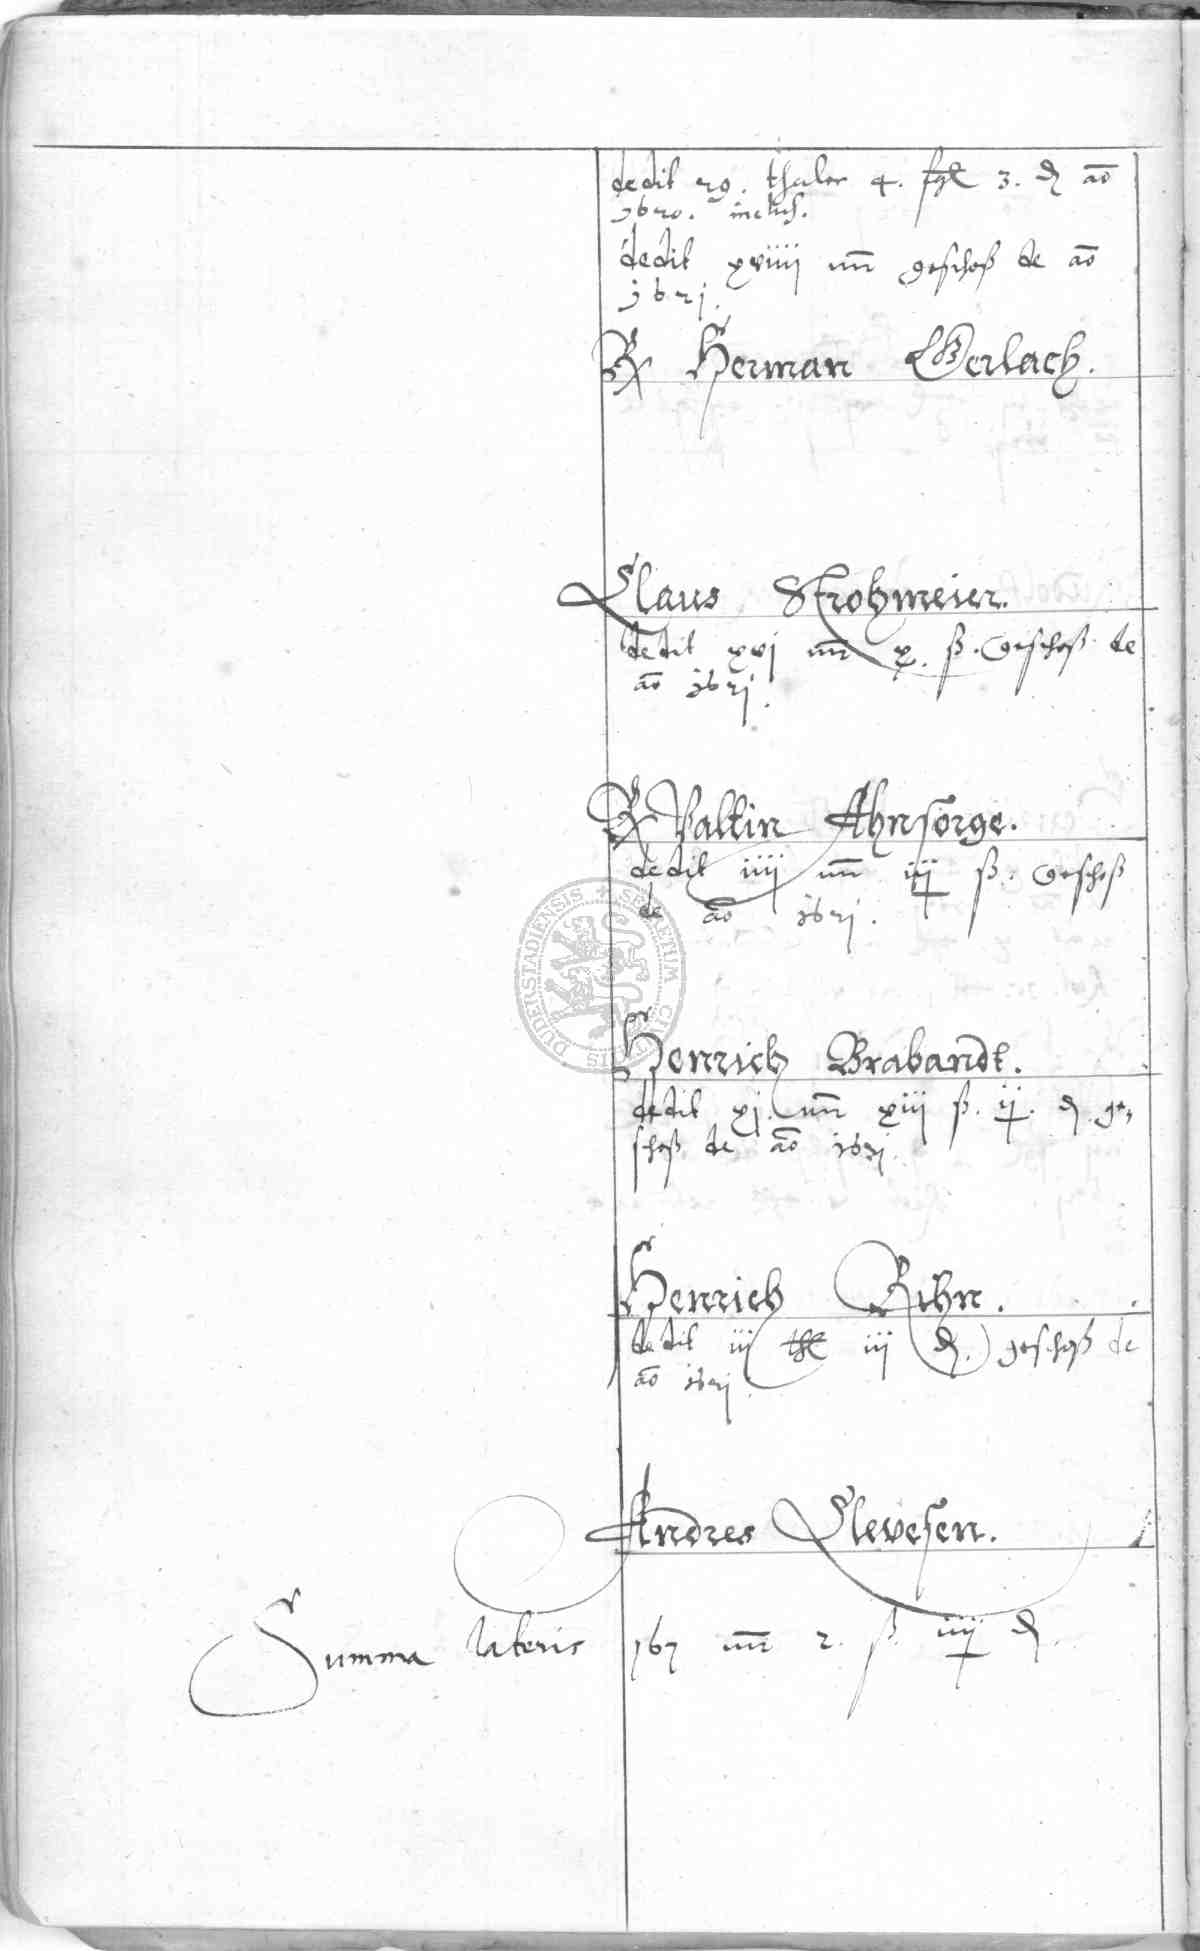 dedit 29. thaler 4. fgl 3. ₰ ao
1620. inclus.
dedit xviiij mr geschoß de ao
1621.
Herman Gerlach.
Claus Strohmeier.
dedit xvj mr x. ß. Geschoß de
ao 1621.
Valtin Ahnsorge.
dedit iiij mr iij ß. Geschoß
de ao 1621.
SECRETUM CIVITATIS DUDERSTADIENSIS
Henrich Brabandt.
dedit xj. mr xiii ß. ij. ₰. ge-
schoß de ao 1621.
Henrich Rihn.
dedit iij thl iij ₰. geschoß de
ao 1621.
Andres Clevesen.
Summa lateris 167 mr 2. ß. iiij ₰.